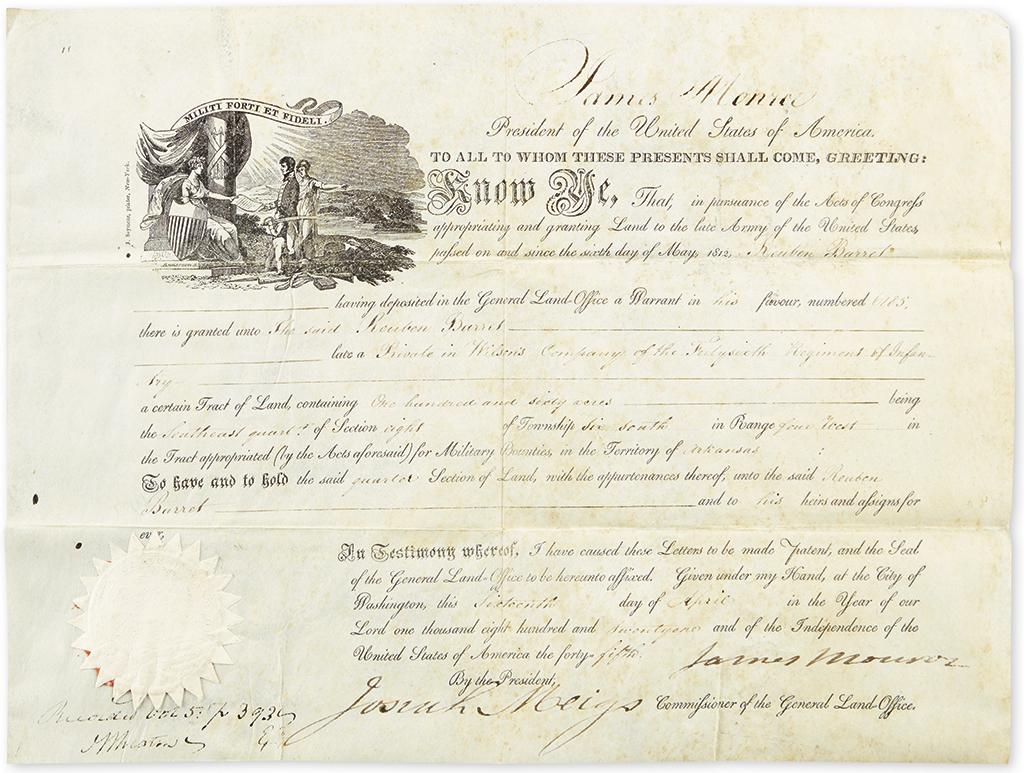 MILITI FORTI ET FIDELI.
James Monroe
President of the United States of America.
TO ALL TO WHOM THESE PRESENTS SHALL COME, GREETING:
Know Ye, That, in pursuance of the Acts of Congress
appropriating and granting Land to the late Army of the United States,
passed on and since the sixth day of May, 1812, Reuben Barret
having deposited in the General Land-Office a Warrant in his favour, numbered
there is granted unto the said Reuben Barret
late a Private in Wilson's Company of the Regiment of Infan-
try
a certain Tract of Land, containing One hundred and sixty acres being
the Southeast quart.r of Section eight of Township six south in Range four West in
the Tract appropriated (by the Acts aforesaid) for Military Bounties, in the Territory of Arkansas
To have and to hold the said quarter Section of Land, with the appurtenances thereof, unto the said Reuben
Barret and to his heirs and assigns for
ever,
In Testimony whereof, I have caused these Letters to be made Patent, and the Seal
of the General Land-Office to be hereunto affixed. Given under my Hand, at the City of
Washington, this Sixteenth day of April in the Year of our
Lord one thousand eight hundred and twenty one and of the Independence of the
United States of America the forty-fifth.
James Monroe
By the President,
Josiah Meigs Commissioner of the General Land-Office.
Recorded Vol 5. p 393